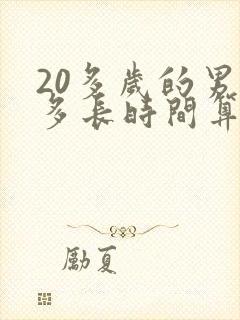 20多歲的男
多長時間算
勵夏